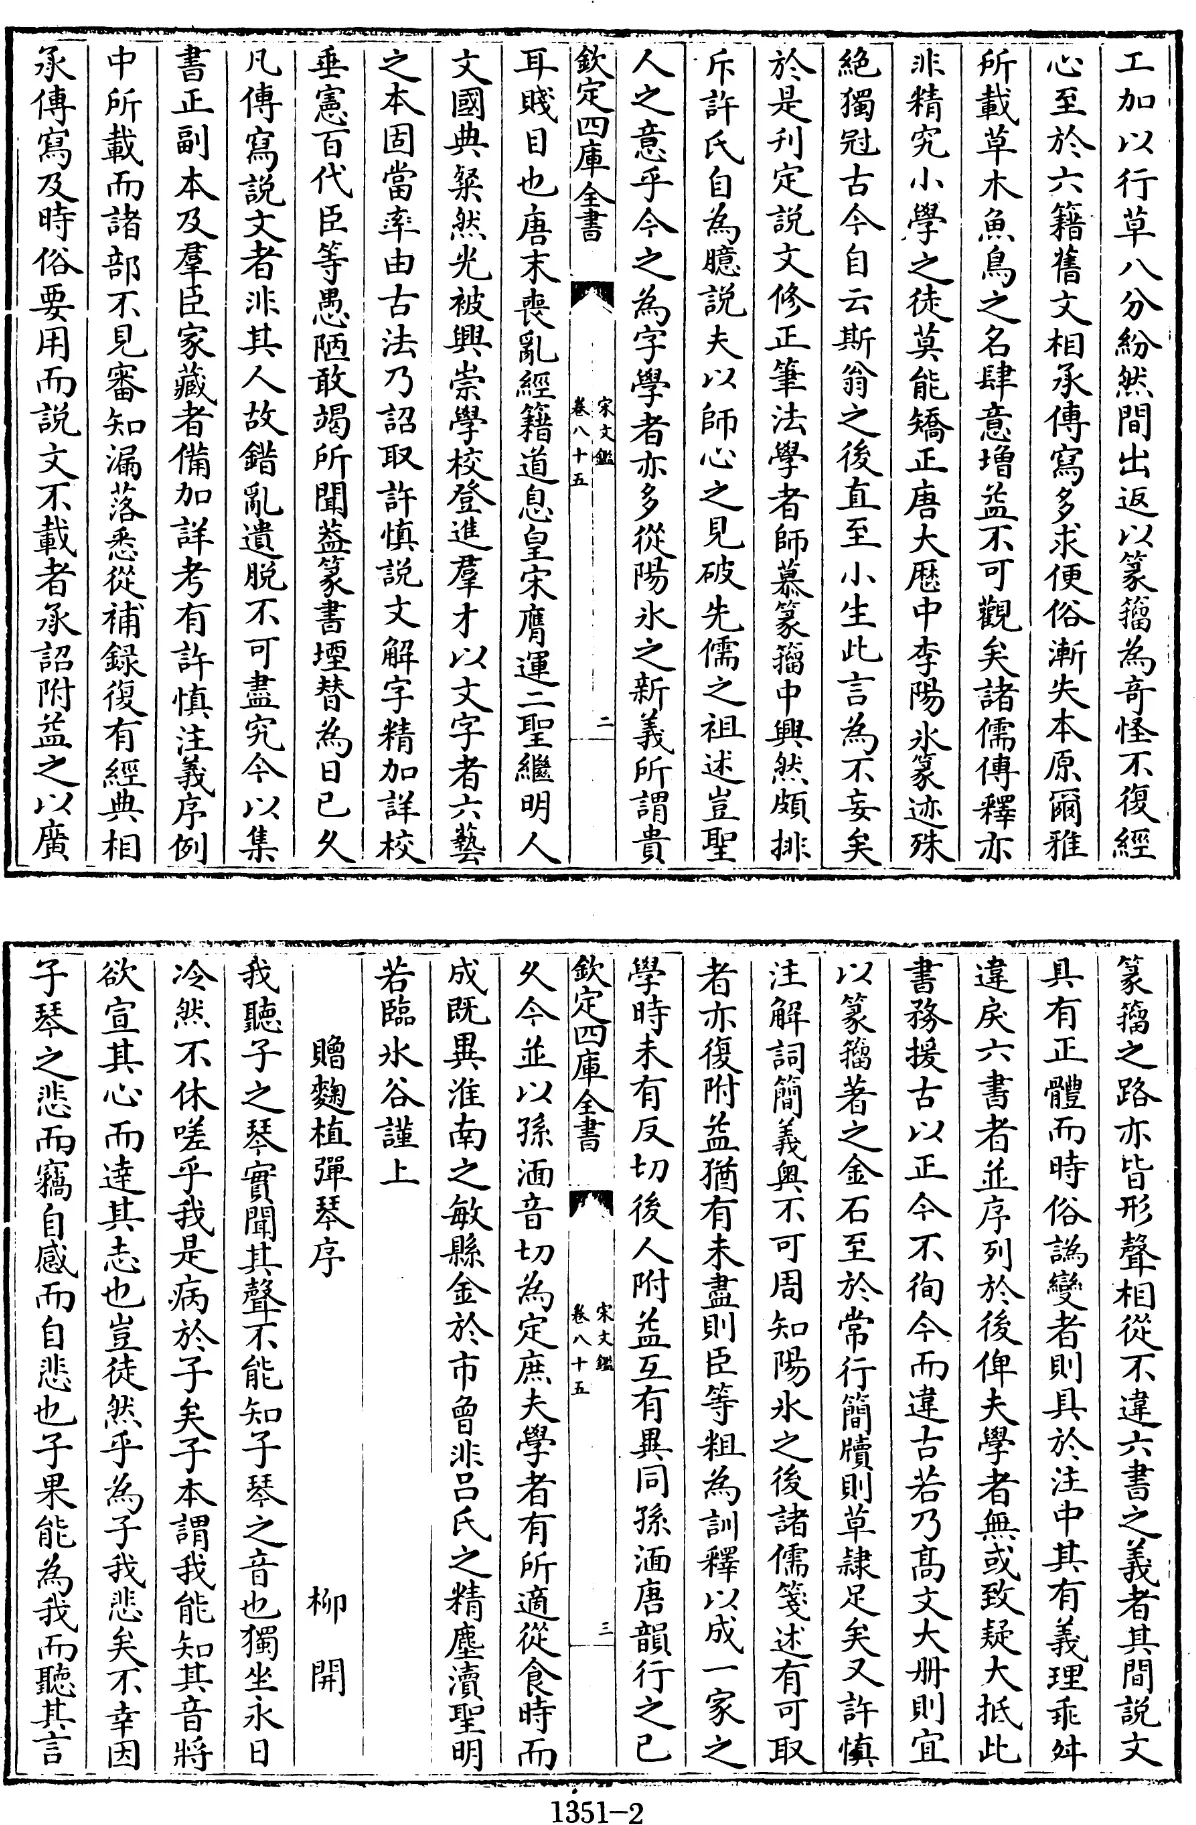 工加以行草八分紛然間出返以篆籀為竒怪不復經
心至於六籍舊文相承傳寫多求便俗漸失本原爾雅
所載草木魚鳥之名肆意增益不可觀矣諸儒傳釋亦
非精究小學之徒莫能矯正唐大厯中李陽氷篆迹殊
絶獨冠古今自云斯翁之後直至小生此言為不妄矣
於是刋定說文修正筆法學者師慕篆籀中興然頗排
斥許氏自為臆說夫以師心之見破先儒之祖述豈聖
人之意乎今之為字學者亦多從陽氷之新義所謂貴
欽定四庫全書 宋文鑑 卷八十五 二
耳賤目也唐末喪亂經籍道息皇宋膺運二聖繼明人
文國典粲然光被興崇學校登進羣才以文字者六藝
之本固當率由古法乃詔取許慎說文解字精加詳校
垂憲百代臣等愚陋敢竭所聞葢篆書堙替為日已久
凡傳寫說文者非其人故錯亂遺脱不可盡究今以集
書正副本及羣臣家藏者備加詳考有許慎注義序例
中所載而諸部不見審知漏落悉從補録復有經典相
承傳寫及時俗要用而說文不載者承詔附益之以廣
篆籀之路亦皆形聲相從不違六書之義者其間說文
具有正體而時俗譌變者則具於注中其有義理乖舛
違戾六書者並序列於後俾夫學者無或致疑大抵此
書務援古以正今不徇今而違古若乃髙文大册則宜
以篆籀著之金石至於常行簡牘則草隸足矣又許慎
注解詞簡義奥不可周知陽氷之後諸儒箋述有可取
者亦復附益猶有未盡則臣等粗為訓釋以成一家之
學時未有反切後人附益互有異同孫湎唐韻行之已
欽定四庫全書 宋文鑑 卷八十五 三
久今並以孫湎音切為定庶夫學者有所適從食時而
成既異淮南之敏縣金於市曾非吕氏之精塵瀆聖明
若臨氷谷謹上
贈麴植彈琴序 柳開
我聽子之琴實聞其聲不能知子琴之音也獨坐永日
冷然不休嗟乎我是病於子矣子本謂我能知其音將
欲宣其心而達其志也豈徒然乎為子我悲矣不幸因
子琴之悲而竊自感而自悲也子果能為我而聽其言
1351-2